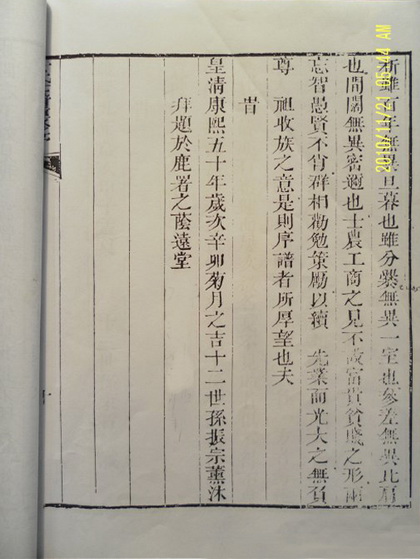 析雖百年無異旦暮也雖分爨無異一室也參差無異比肩
也間闊無異密邇也士農工商之見不設富貴貧賤之形兩
忘智愚賢不肖群相勸勉策勵以續　先業而光大之無負
尊　祖收族之意是則序譜者所厚望也夫
昔
皇清康熙五十年歲次辛卯菊月之吉十二世孫振宗薰沐
拜題於鹿署之蔭遠堂
2010/11/21 05:44 AM